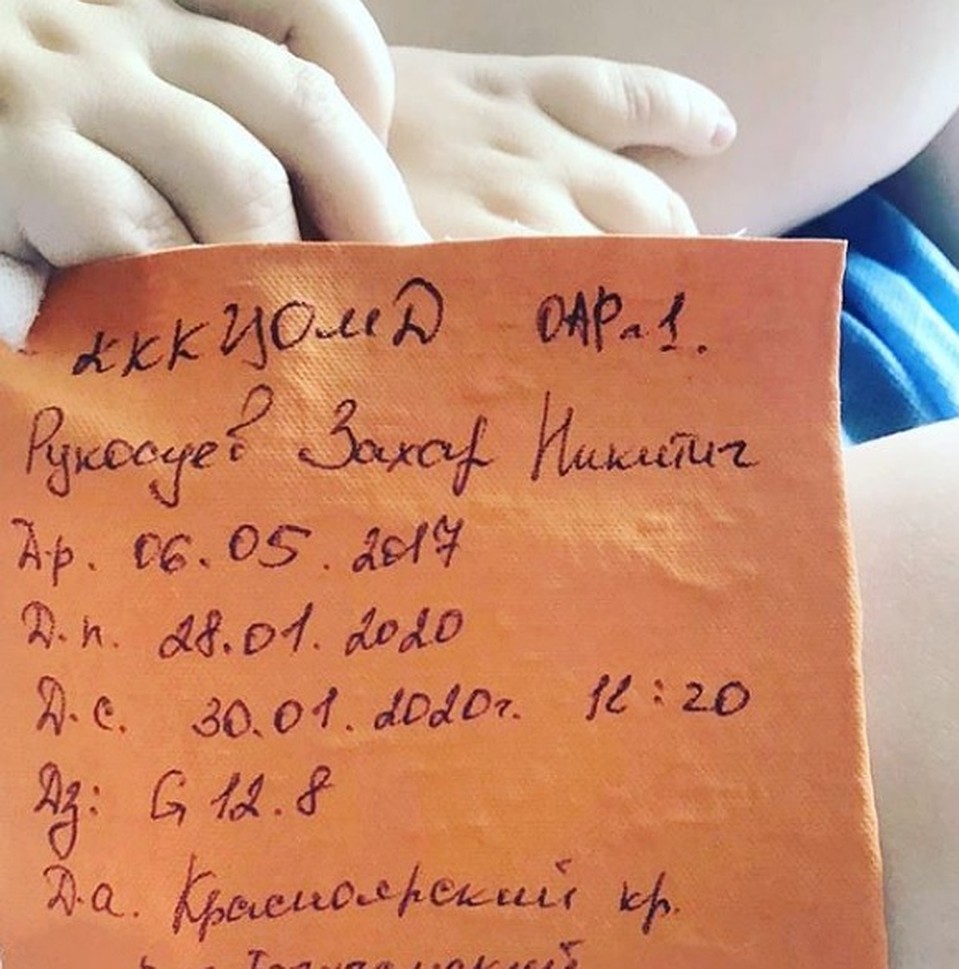 ККК ЦОМД ОАР-1.
Рукосуев Захар Никитич
Д.р. 06.05.2017
Д.п. 28.01.2020
Д.с. 30.01.2020г. 12:20
Дз: G 12.8
Д.а. Красноярский кр.